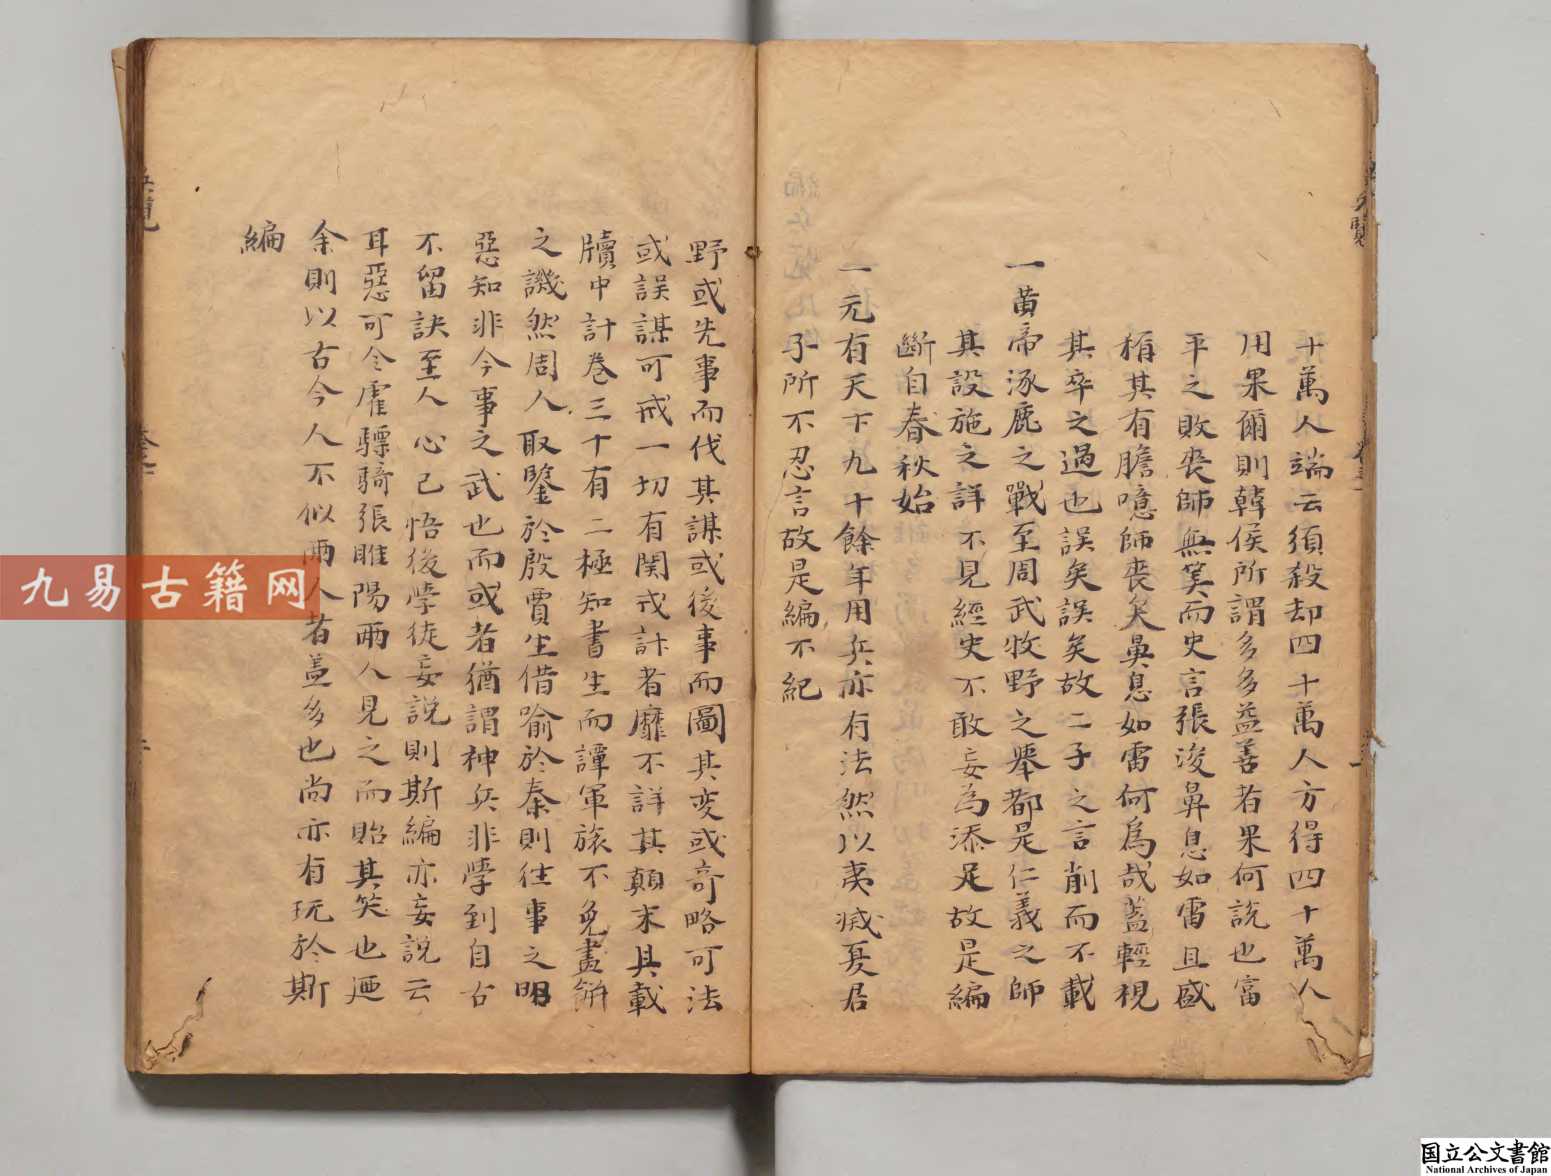 十萬人端云須殺却四十萬人方得四十萬人
用果爾則韓侯所謂多多益善者果何説也富
平之敗喪師無筭而史言張浚鼻息如雷且盛
稱其有膽噫師喪矣鼻息如雷何爲哉蓋輕視
其卒之過也誤矣誤矣故二子之言削而不載
一黄帝涿鹿之戰至周武牧野之舉都是仁義之師
其設施之詳不見經史不敢妄為添足故是編
斷自春秋始
一元有天下九十餘年用兵亦有法然以夷滅夏君
子所不忍言故是編不紀
野或先事而伐其謀或後事而圖其变或奇略可法
或誤謀可戒一切有関戎計者靡不詳其顛末具載
牘中計巻三十有二極知書生而譚軍旅不免畫餅
之譏然周人取鑒於殷賈生借喻於秦則往事之明
惡知非今事之武也而或者猶謂神兵非學到自古
不留訣至人心已悟後學徒妄説則斯編亦妄説云
耳惡可令霍驃騎張睢陽兩人見之而貽其笑也廼
余則以古今人不似兩人者盖多也尚亦有玩於斯
編
九易古籍网
国立公文書館
National Archives of Japan